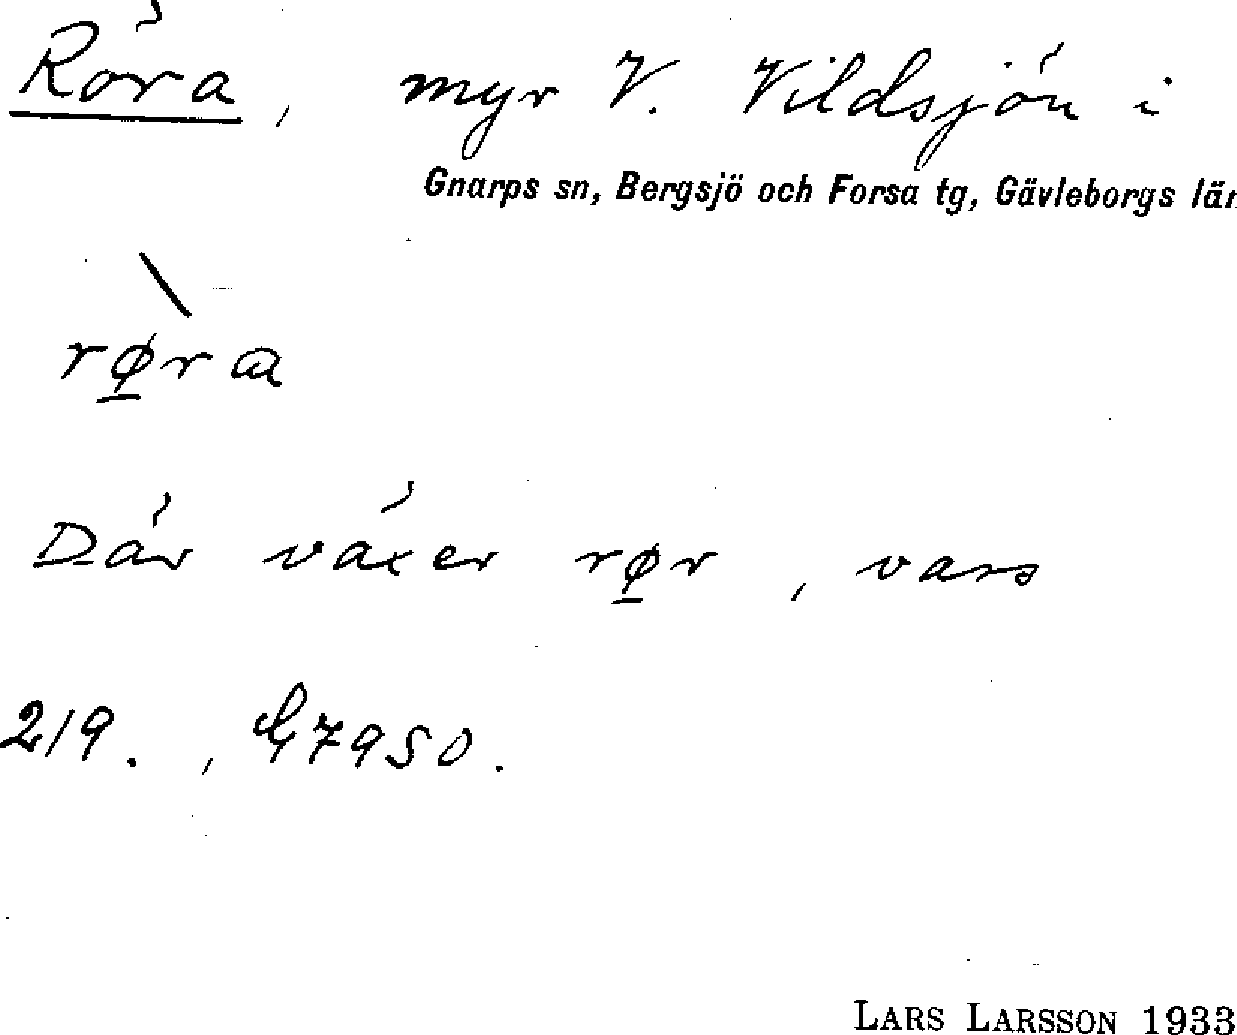 Röra, myr V. Vildsjön i
Gnarps sn, Bergsjö och Forsa tg, Gävleborgs län
rø̱ra
Där växer rø̱r, vass
219., 47950.
LARS LARSSON 1933